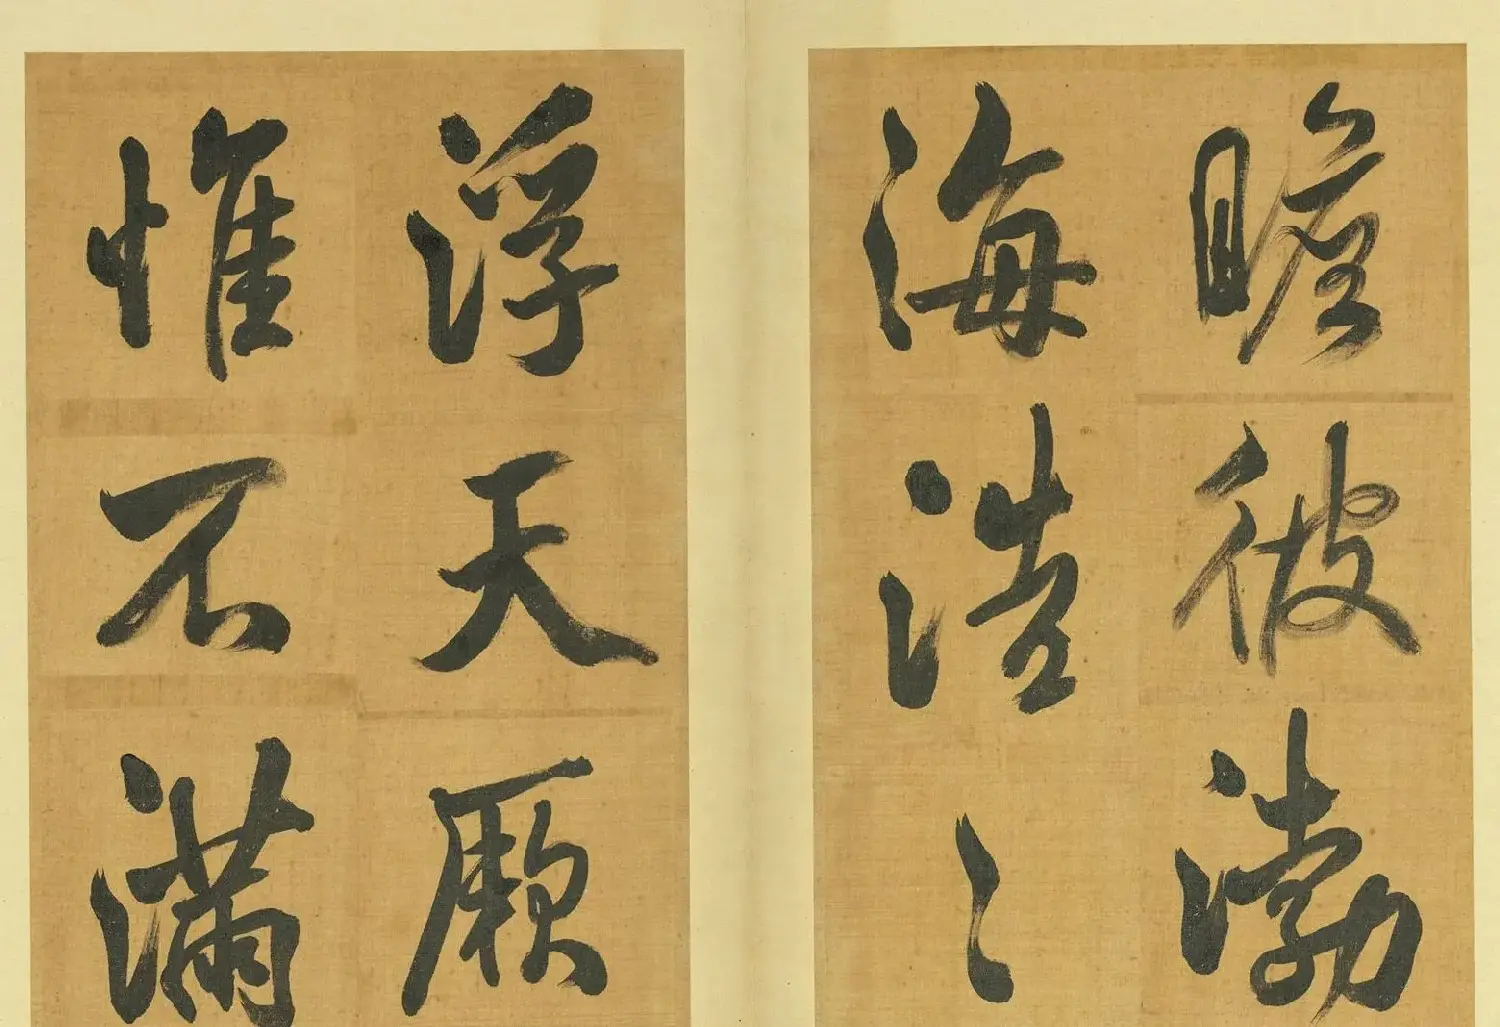 瞻彼渤
海浩〻
浮天厥
惟不滿